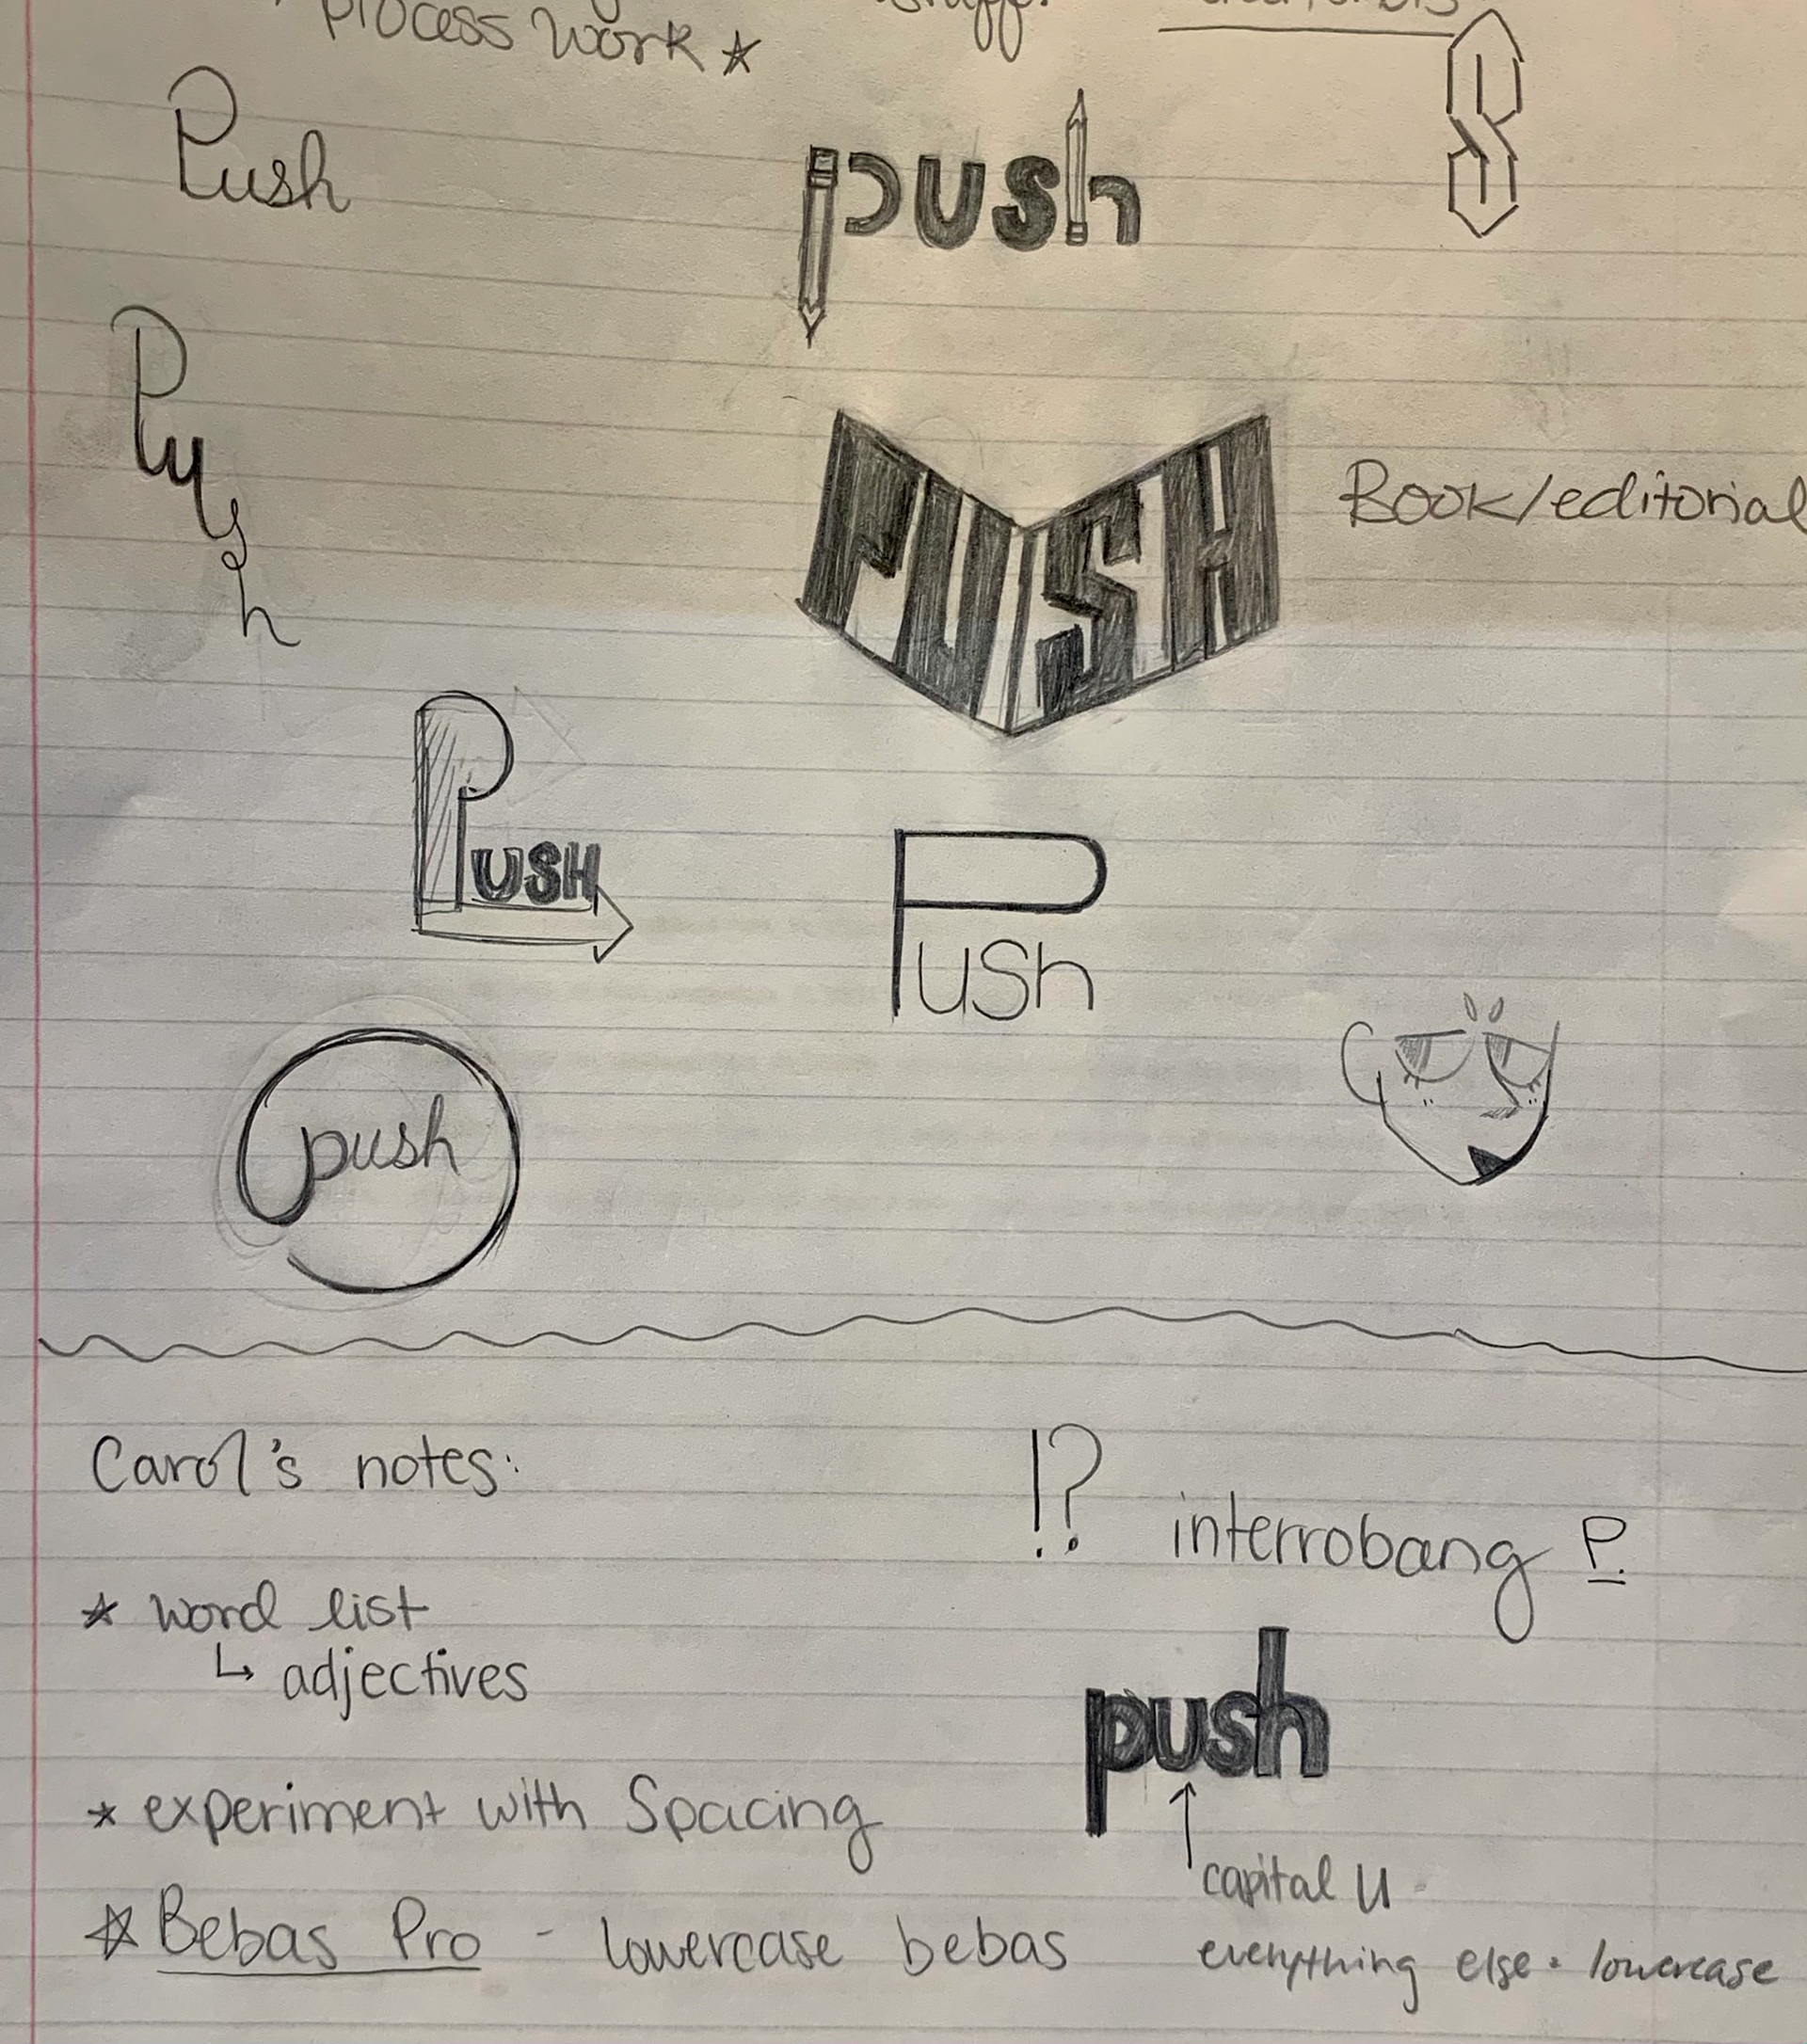 process work
stuff.
Push
push
Push
PUSH
Book/editorial
PUSH
Push
push
Carol's notes:
!? interrobang P.
* word list
↳ adjectives
push
* experiment with Spacing
capital U
* Bebas Pro - lowercase bebas
everything else • lowercase